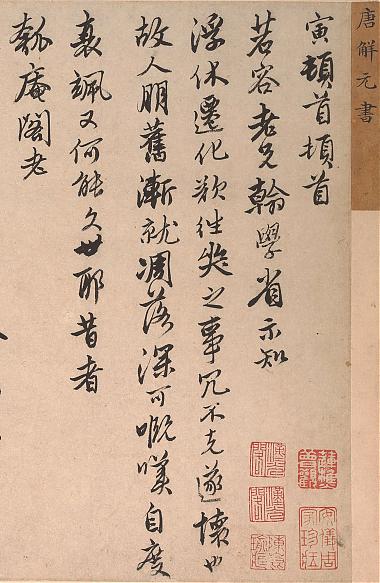 唐解元書
寅頓首頓首
若容老兄翰學省示知
浮休遷化欲往哭之事冗不克遂懷也
故人朋舊漸就凋落深可嘅嘆自度
衰颯又何能久世耶昔者
瓠庵閣老